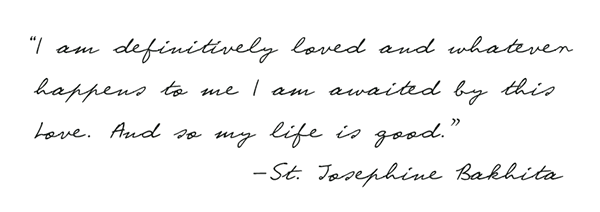 “I am definitively loved and whatever
happens to me I am awaited by this
Love. And so my life is good.”
—St. Josephine Bakhita